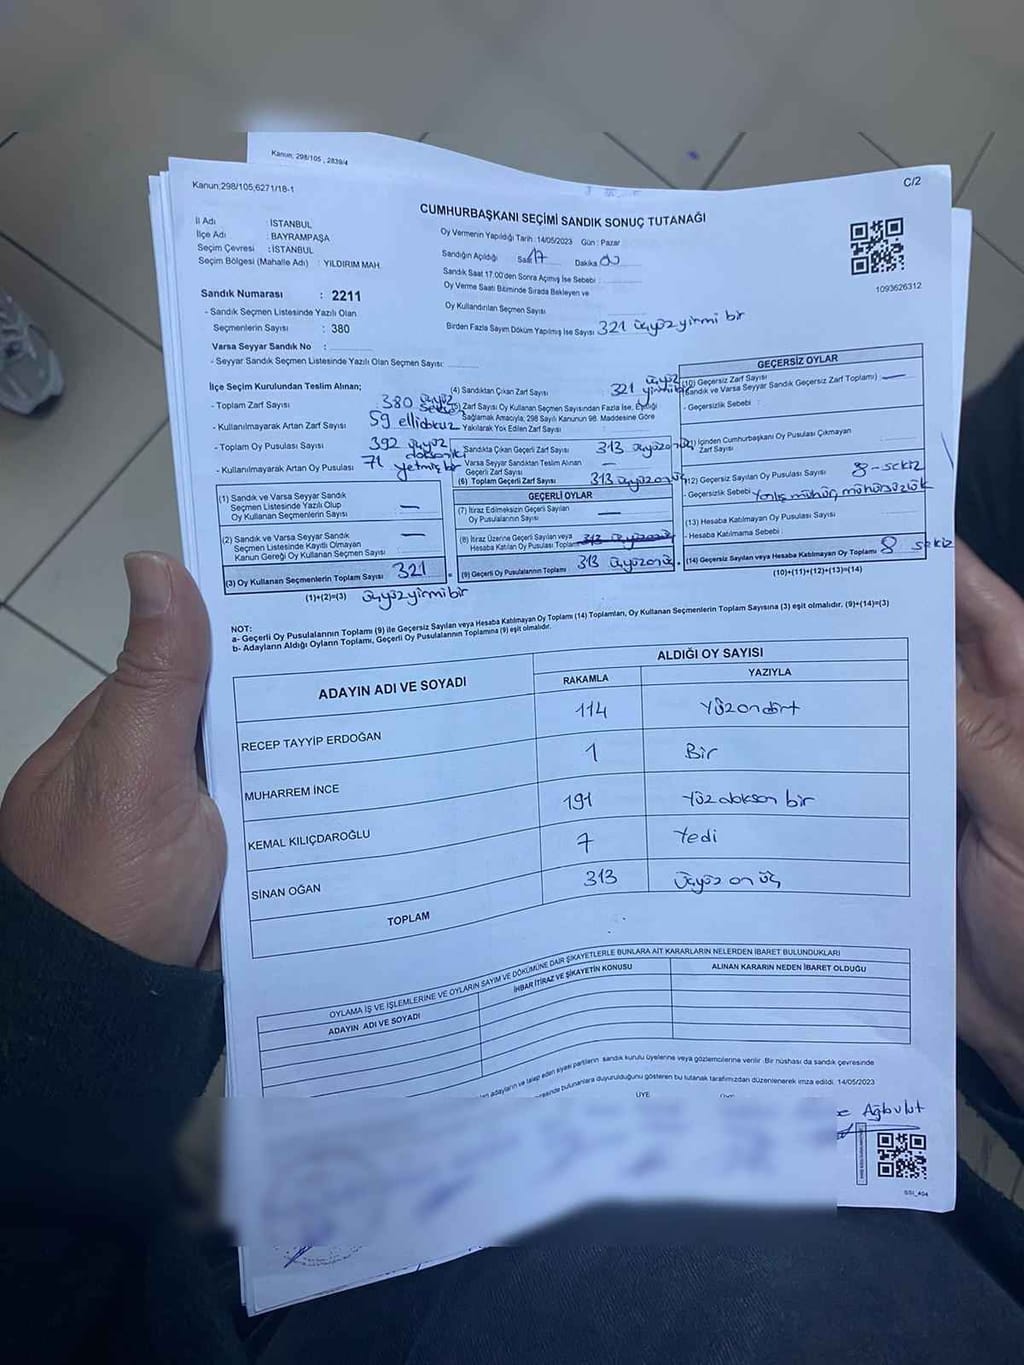 Kanun; 298/105 , 2839/4
Kanun;298/105,6271/18-1
C/2
CUMHURBAŞKANI SEÇİMİ SANDIK SONUÇ TUTANAĞI
İl Adı : İSTANBUL
İlçe Adı : BAYRAMPAŞA
Seçim Çevresi : İSTANBUL
Seçim Bölgesi (Mahalle Adı) : YILDIRIM MAH.
Oy Vermenin Yapıldığı Tarih : 14/05/2023 Gün : Pazar
Sandığın Açıldığı Saat 17 Dakika 00
Sandık Saat 17.00'den Sonra Açılmış İse Sebebi :
Oy Verme Saati Bitiminde Sırada Bekleyen ve
Oy Kullandırılan Seçmen Sayısı
Birden Fazla Sayım Döküm Yapılmış İse Sayısı 321 üçyüzyirmi bir
1093626312
Sandık Numarası : 2211
- Sandık Seçmen Listesinde Yazılı Olan
Seçmenlerin Sayısı : 380
Varsa Seyyar Sandık No :
- Seyyar Sandık Seçmen Listesinde Yazılı Olan Seçmen Sayısı:
İlçe Seçim Kurulundan Teslim Alınan;
- Toplam Zarf Sayısı 380 üçyüz seksen
- Kullanılmayarak Artan Zarf Sayısı 59 ellidokuz
- Toplam Oy Pusulası Sayısı 392 üçyüz doksaniki
- Kullanılmayarak Artan Oy Pusulası 71 yetmişbir
(1) Sandık ve Varsa Seyyar Sandık
Seçmen Listesinde Yazılı Olup
Oy Kullanan Seçmenlerin Sayısı —
(2) Sandık ve Varsa Seyyar Sandık
Seçmen Listesinde Kayıtlı Olmayan
Kanun Gereği Oy Kullanan Seçmen Sayısı —
(3) Oy Kullanan Seçmenlerin Toplam Sayısı 321
(1)+(2)=(3) üçyüzyirmibir
(4) Sandıktan Çıkan Zarf Sayısı 321 üçyüz yirmibir
(5) Zarf Sayısı Oy Kullanan Seçmen Sayısından Fazla İse, Eşitliği
Sağlamak Amacıyla, 298 Sayılı Kanunun 98. Maddesine Göre
Yakılarak Yok Edilen Zarf Sayısı
Sandıkta Çıkan Geçerli Zarf Sayısı 313 üçyüzonüç
Varsa Seyyar Sandıktan Teslim Alınan
Geçerli Zarf Sayısı —
(6) Toplam Geçerli Zarf Sayısı 313 üçyüzonüç
GEÇERLİ OYLAR
(7) İtiraz Edilmeksizin Geçerli Sayılan
Oy Pusulalarının Sayısı —
(8) İtiraz Üzerine Geçerli Sayılan veya
Hesaba Katılan Oy Pusulası Toplamı 313 üçyüzonüç
(9) Geçerli Oy Pusulalarının Toplamı 313 üçyüzonüç
GEÇERSİZ OYLAR
(10) Geçersiz Zarf Sayısı
(Sandık ve Varsa Seyyar Sandık Geçersiz Zarf Toplamı) —
- Geçersizlik Sebebi :
(11) İçinden Cumhurbaşkanı Oy Pusulası Çıkmayan
Zarf Sayısı
(12) Geçersiz Sayılan Oy Pusulası Sayısı 8 - sekiz
- Geçersizlik Sebebi Yanlış mühür, mühürsüzlük
(13) Hesaba Katılmayan Oy Pusulası Sayısı
- Hesaba Katılmama Sebebi :
(14) Geçersiz Sayılan veya Hesaba Katılmayan Oy Toplamı 8 sekiz
(10)+(11)+(12)+(13)=(14)
NOT:
a- Geçerli Oy Pusulalarının Toplamı (9) ile Geçersiz Sayılan veya Hesaba Katılmayan Oy Toplamı (14) Toplamları, Oy Kullanan Seçmenlerin Toplam Sayısına (3) eşit olmalıdır. (9)+(14)=(3)
b- Adayların Aldığı Oyların Toplamı, Geçerli Oy Pusulalarının Toplamına (9) eşit olmalıdır.
ADAYIN ADI VE SOYADI ALDIĞI OY SAYISI
RAKAMLA YAZIYLA
RECEP TAYYİP ERDOĞAN 114 Yüzondört
MUHARREM İNCE 1 Bir
KEMAL KILIÇDAROĞLU 191 Yüzdoksan bir
SİNAN OĞAN 7 Yedi
TOPLAM 313 üçyüz on üç
OYLAMA İŞ VE İŞLEMLERİNE VE OYLARIN SAYIM VE DÖKÜMÜNE DAİR ŞİKAYETLERLE BUNLARA AİT KARARLARIN NELERDEN İBARET BULUNDUKLARI
ADAYIN ADI VE SOYADI İHBAR İTİRAZ VE ŞİKAYETİN KONUSU ALINAN KARARIN NEDEN İBARET OLDUĞU
adayların ve talep eden siyasi partilerin sandık kurulu üyelerine veya gözlemcilerine verilir. Bir nüshası da sandık çevresinde
bulunanlara duyurulduğunu gösteren bu tutanak tarafımızdan düzenlenerek imza edildi. 14/05/2023
ÜYE
Ağbulut
SSI_404